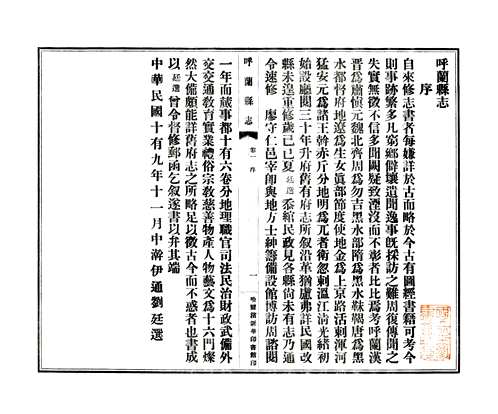 呼蘭縣志
序
自來修志書者每嫌詳於古而略於今古有圖經書籍可考今
則事跡繁多凡窮鄉僻壤遺聞逸事既採訪之難周復傳聞之
失實無徵不信多聞闕疑致湮沒而不彰者比比焉考呼蘭漢
晉爲肅慎元魏北齊周爲勿吉黑水部隋爲黑水靺鞨唐爲黑
水都督府地遼爲生女眞部節度使地金爲上京路活剌渾河
猛安元爲諸王斡赤斤分地明爲兀者衛忽剌溫江淸光緒初
始設廳閱三十年升府舊有府志所叙沿革猶慮弗詳民國改
縣未遑重修歲己巳夏廷選忝綰民政見各縣尙未有志乃通
令速修 廖守仁邑宰卽與地方士紳籌備設館博訪周諮閱
一年而蕆事都十有六卷分地理職官司法民治財政武備外
交交通敎育實業禮俗宗敎慈善物產人物藝文爲十六門燦
然大備頗能詳舊府志之所略足以徵古今而不惑者也書成
以廷選曾令督修郵函乞叙遂書以弁其端
中華民國十有九年十一月中澣伊通劉廷選
呼蘭縣志
卷一 序
一
哈爾濱新華印書館印